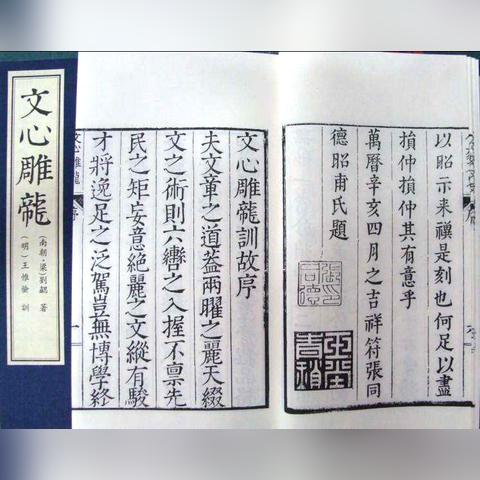 文心雕龍
(南朝·梁)劉勰 著
(明)王惟儉 訓
文心雕龍訓故序
夫文章之道蓋兩曜之麗天綴
文之術則六轡之入握不禀先
民之矩妄意絕麗之文縱有駿
才將逸足之泛駕豈無博學終
文心雕龍 序 一
以昭示来禩是刻也何足以盡
損仲損仲其有意乎
萬曆辛亥四月之吉祥符張同
德昭甫氏題